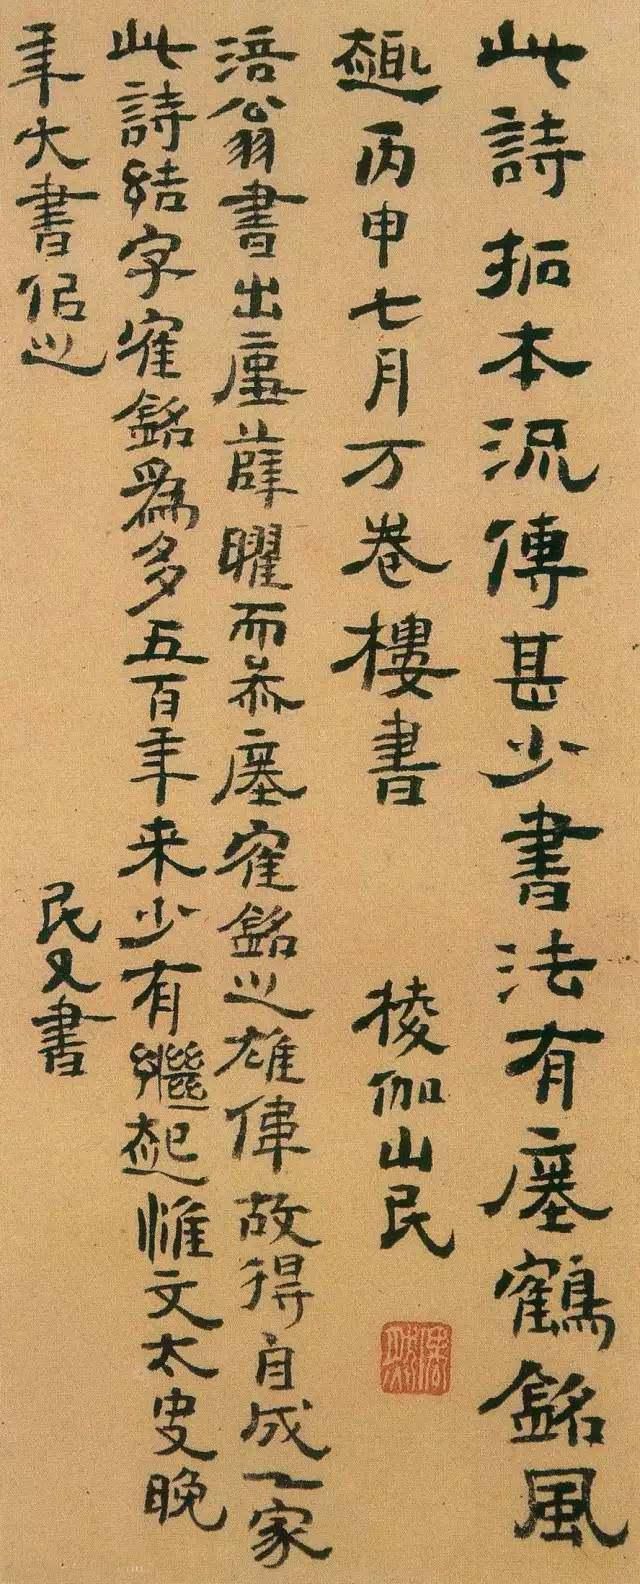 此詩拓本流傳甚少書法有瘞鶴銘風
趣丙申七月万卷樓書 棱伽山民
涪翁書出薛曜而叅瘞寉銘之雄偉故得自成一家
此詩結字寉銘爲多五百年来少有繼起惟文太史晚
年大書佀之 民又書